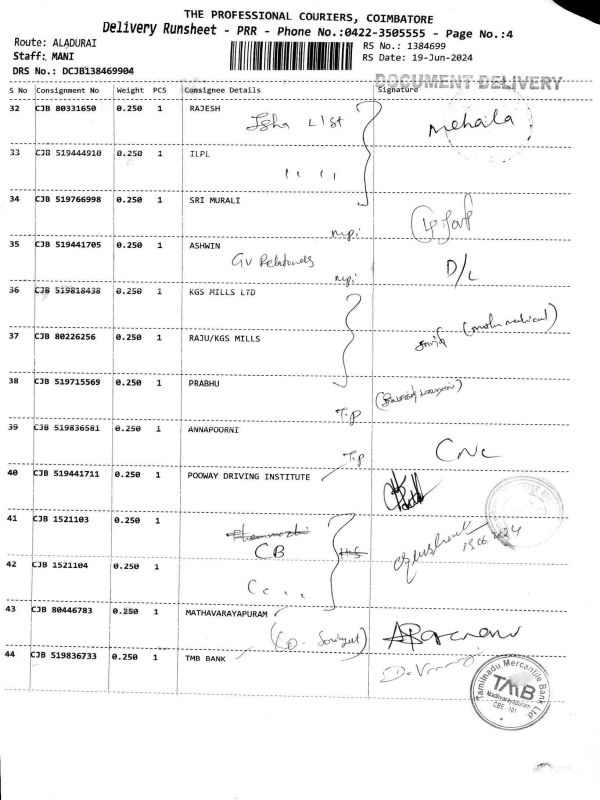 THE PROFESSIONAL COURIERS, COIMBATORE
Delivery Runsheet - PRR - Phone No.:0422-3505555 - Page No.:4
Route: ALADURAI
RS No.: 1384699
Staff: MANI
RS Date: 19-Jun-2024
DRS No.: DCJB138469904
DOCUMENT DELIVERY
S No Consignment No Weight PCS Consignee Details Signature
32 CJB 80331650 0.250 1 RAJESH
Isha List
Mehaila
33 CJB 519444910 0.250 1 ILPL
34 CJB 519766998 0.250 1 SRI MURALI
35 CJB 519441705 0.250 1 ASHWIN
GV Residency
D/L
36 CJB 519818438 0.250 1 KGS MILLS LTD
37 CJB 80226256 0.250 1 RAJU/KGS MILLS
38 CJB 519715569 0.250 1 PRABHU
T.P
39 CJB 519836581 0.250 1 ANNAPOORNI
T.P
CNC
40 CJB 519441711 0.250 1 POOWAY DRIVING INSTITUTE
41 CJB 1521103 0.250 1
CB
19.06.2024
42 CJB 1521104 0.250 1
43 CJB 80446783 0.250 1 MATHAVARAYAPURAM
44 CJB 519836733 0.250 1 TMB BANK
Tamilnadu Mercantile Bank Ltd.
TMB
Madhvarayapuram
CBE - 101